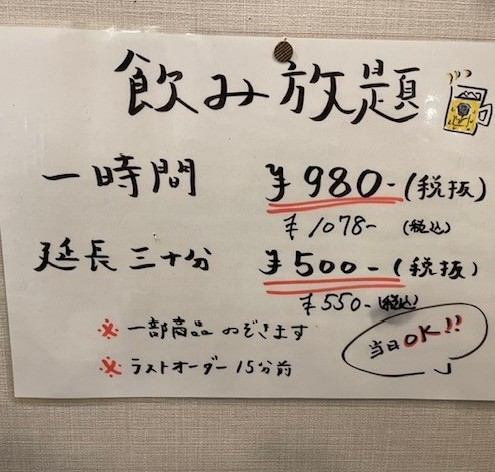 飲み放題
一時間 ¥980-(税抜)
¥1078- (税込)
延長三十分 ¥500-(税抜)
¥550-(税込)
※一部商品のぞきます
※ラストオーダー15分前
当日OK!!